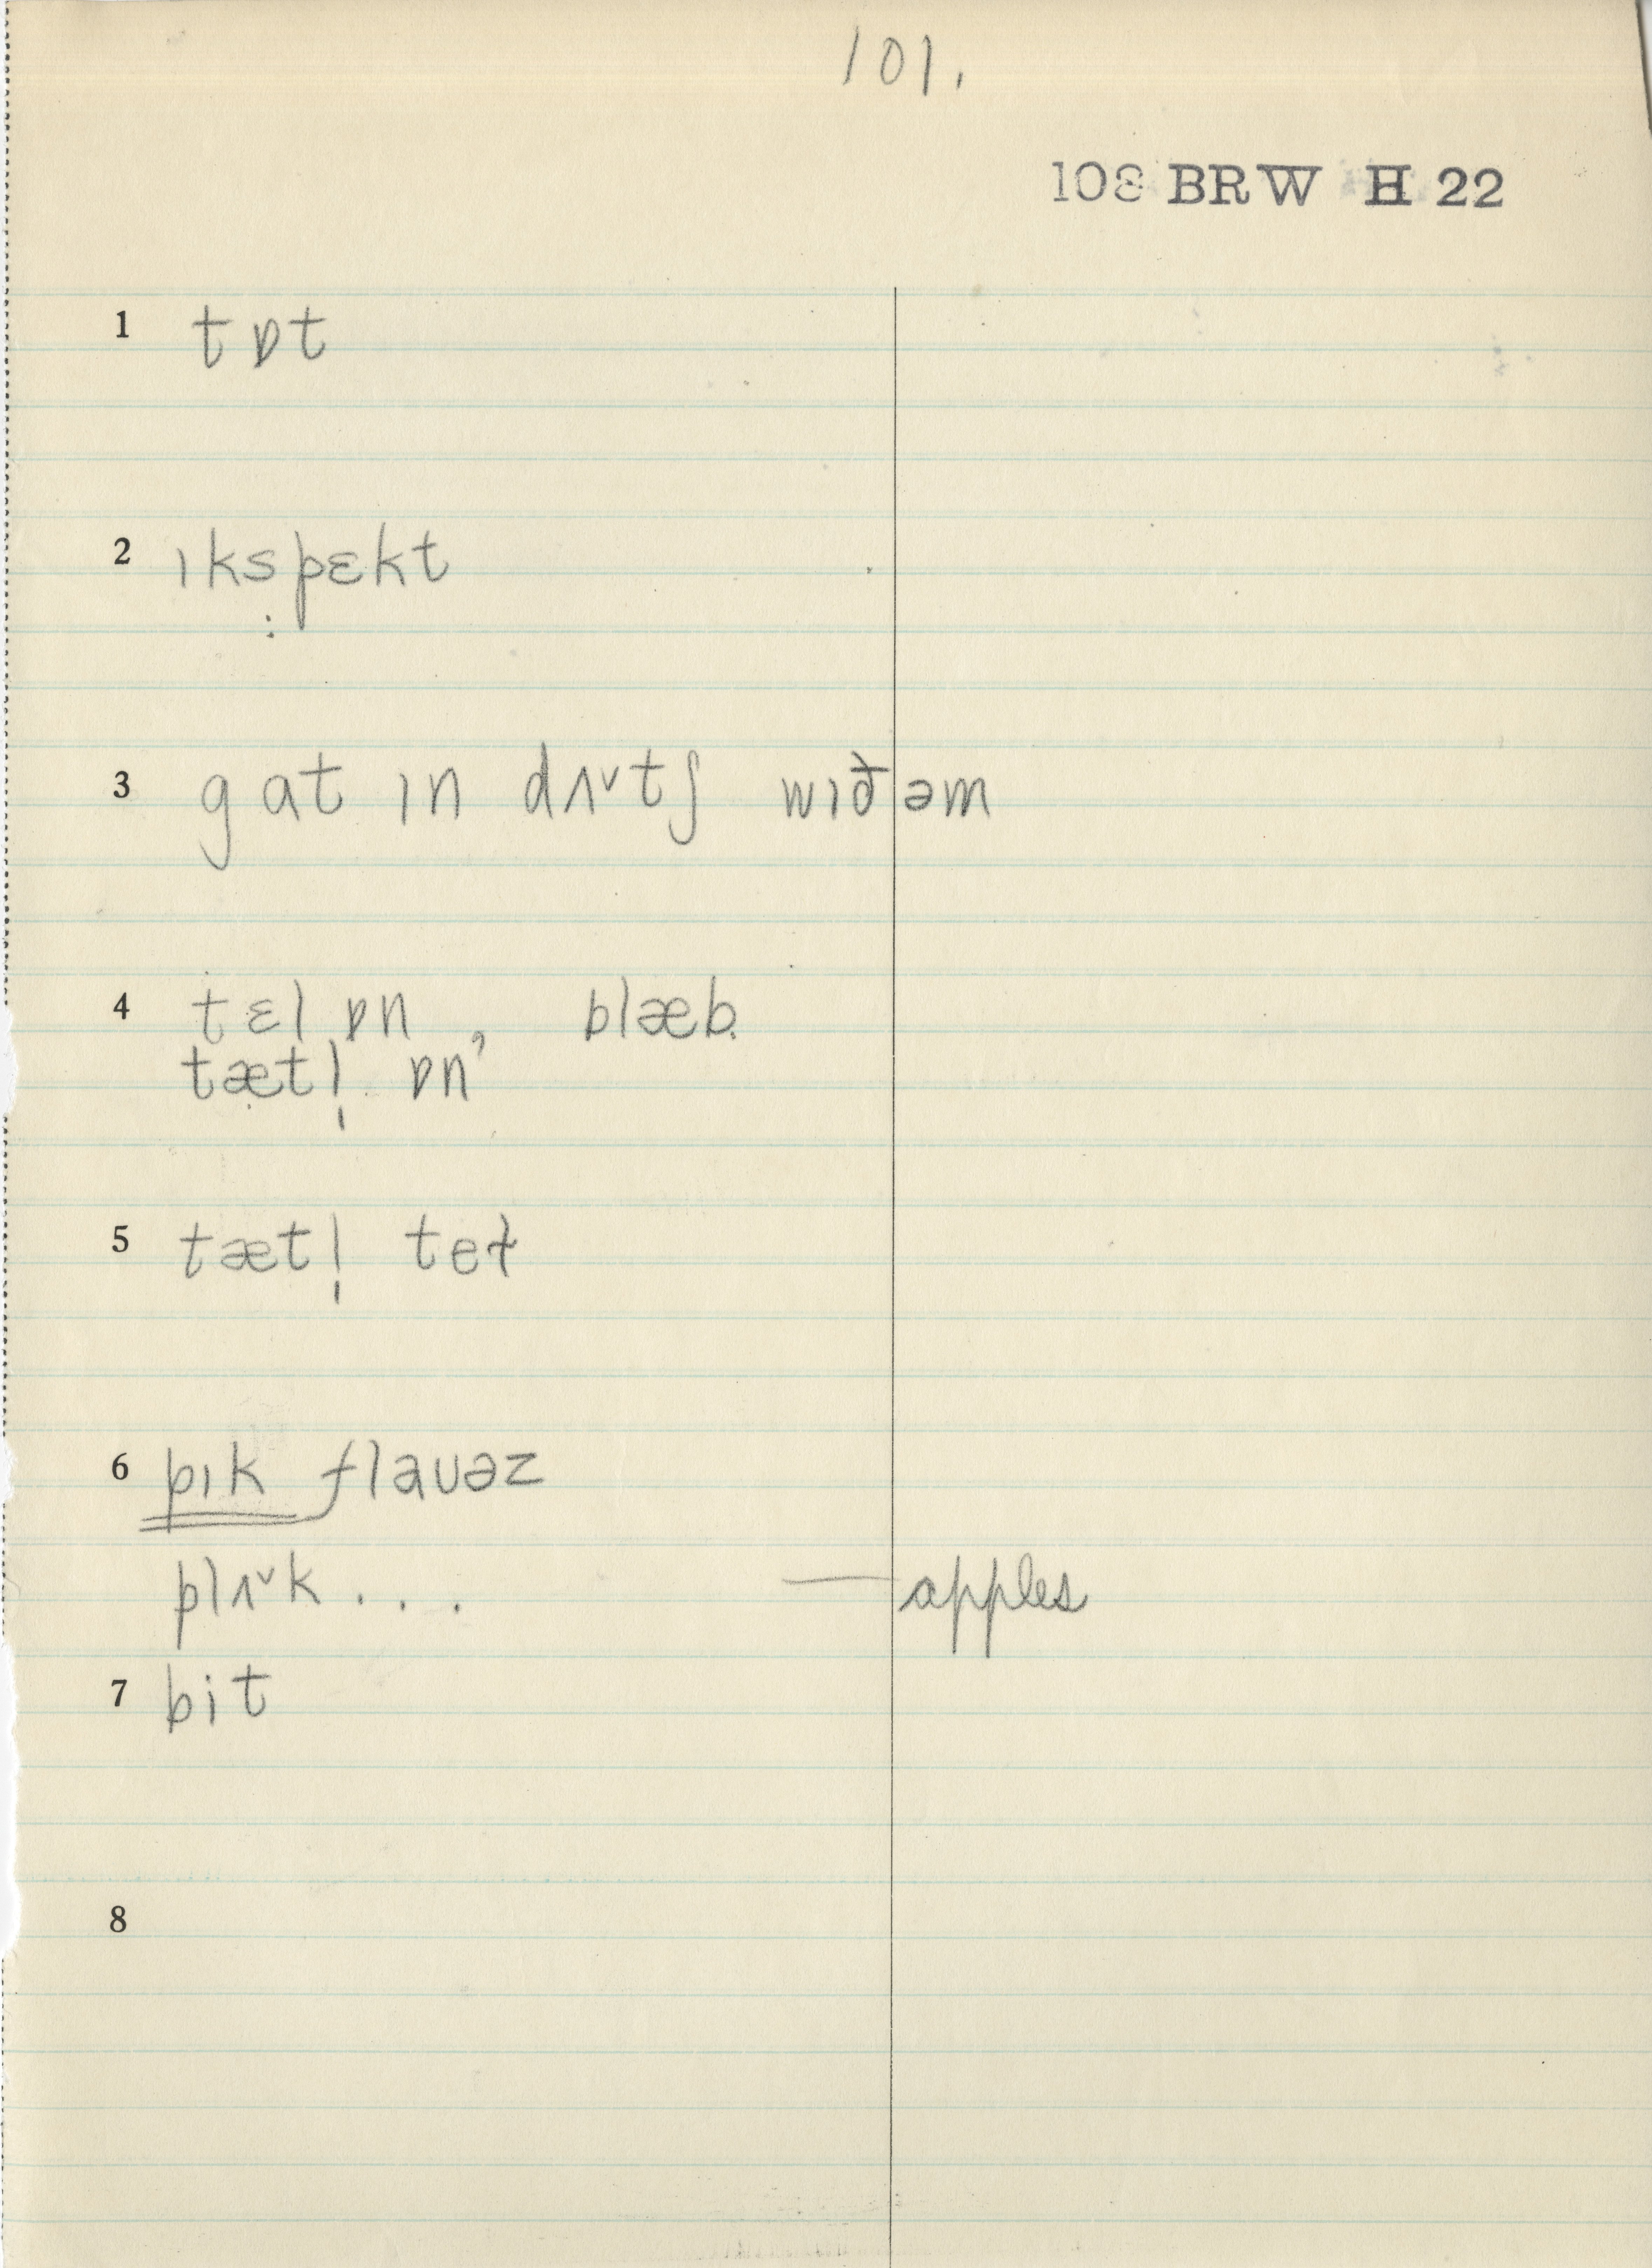 101.
108 BRW H 22
1 tɒt
2 ɪkspɛkt
3 gat ɪn dʌ˅tʃ wɪðəm
4 tɛl ɒn, blæb
tætl̩ ɒn
5 tætl̩ teɫ
6 pɪk flauəz
plʌ˅k... — apples
7 bit
8